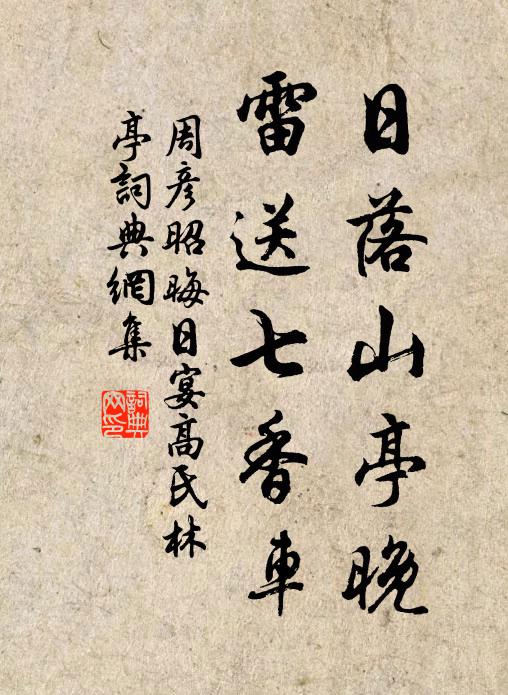 日落山亭晚
雷送七香車
周彥昭晦日宴高氏林
亭詞典網集
詞典
网印